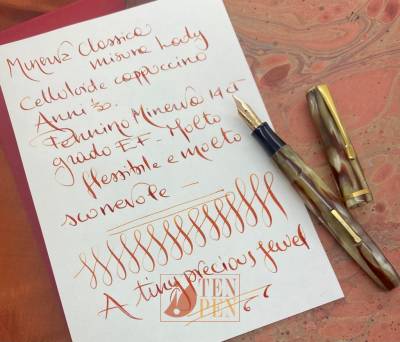 Minerva Classica
misura Lady
Celluloide cappuccino
Anni '30.
Pennino Minerva 14 ct
grado EF - Molto
flessibile e molto
scorrevole
A tiny precious jewel
TEN
PEN